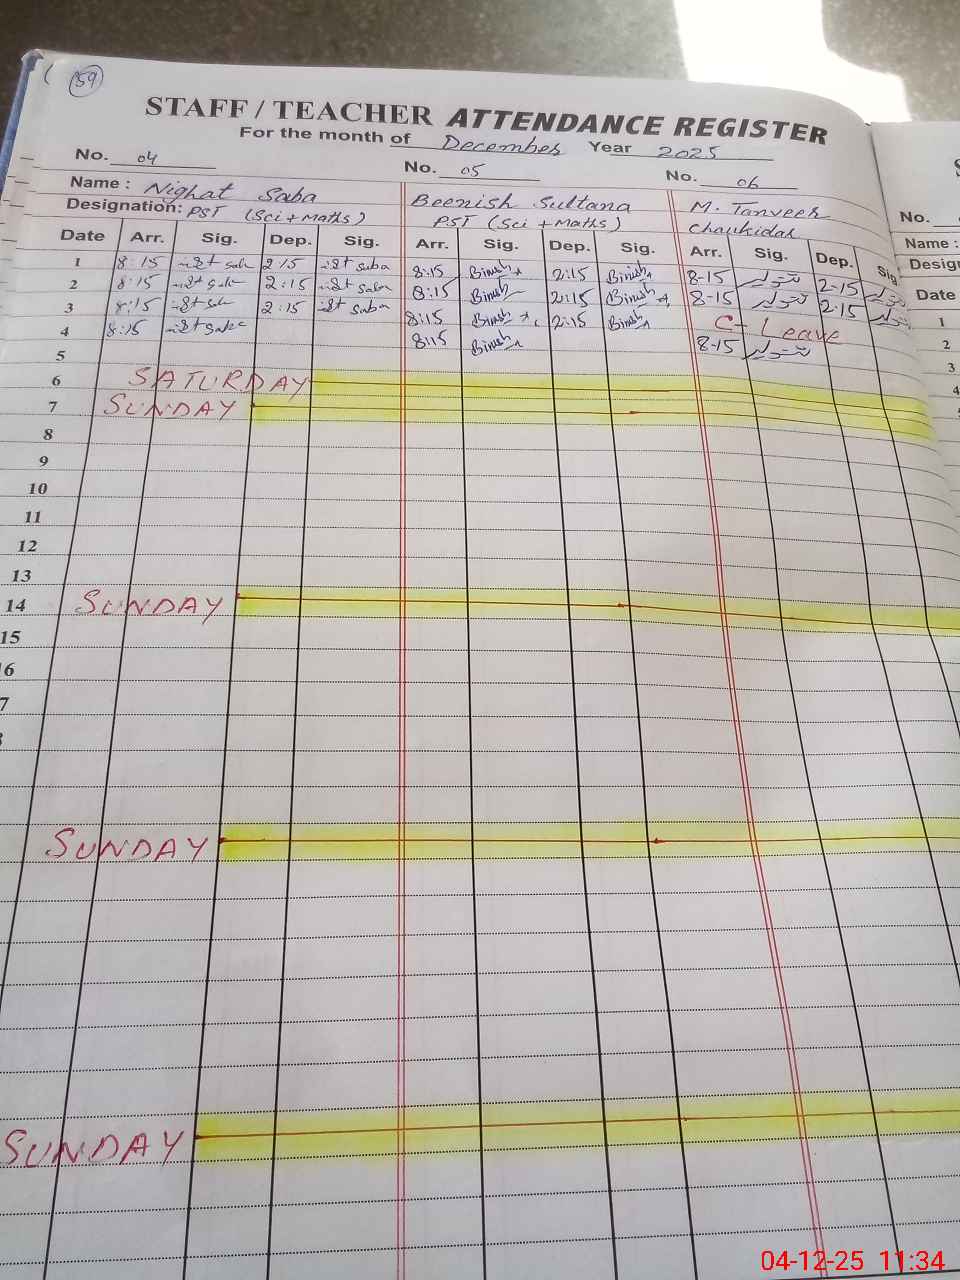 59
STAFF / TEACHER ATTENDANCE REGISTER
For the month of December Year 2025
No. 04 No. 05 No. 06
Name : Nighat Saba Beenish Sultana M. Tanveer
Designation: PST (Sci + Maths) PST (Sci + Maths) Chaukidar
Date Arr. Sig. Dep. Sig. Arr. Sig. Dep. Sig. Arr. Sig. Dep. Sig
1 8:15 2:15 saba 8:15 Binish 2:15 Binish 8-15 2-15
2 8:15 2:15 saba 8:15 Binish 2:15 Binish 8-15 2-15
3 8:15 2:15 saba 8:15 Binish 2:15 Binish C-Leave
4 8:15 8:15 Binish 8-15
5
6 SATURDAY
7 SUNDAY
8
9
10
11
12
13
14 SUNDAY
15
16
7
SUNDAY
SUNDAY
No.
Name :
Desig
Date
1
2
3
4
04-12-25 11:34